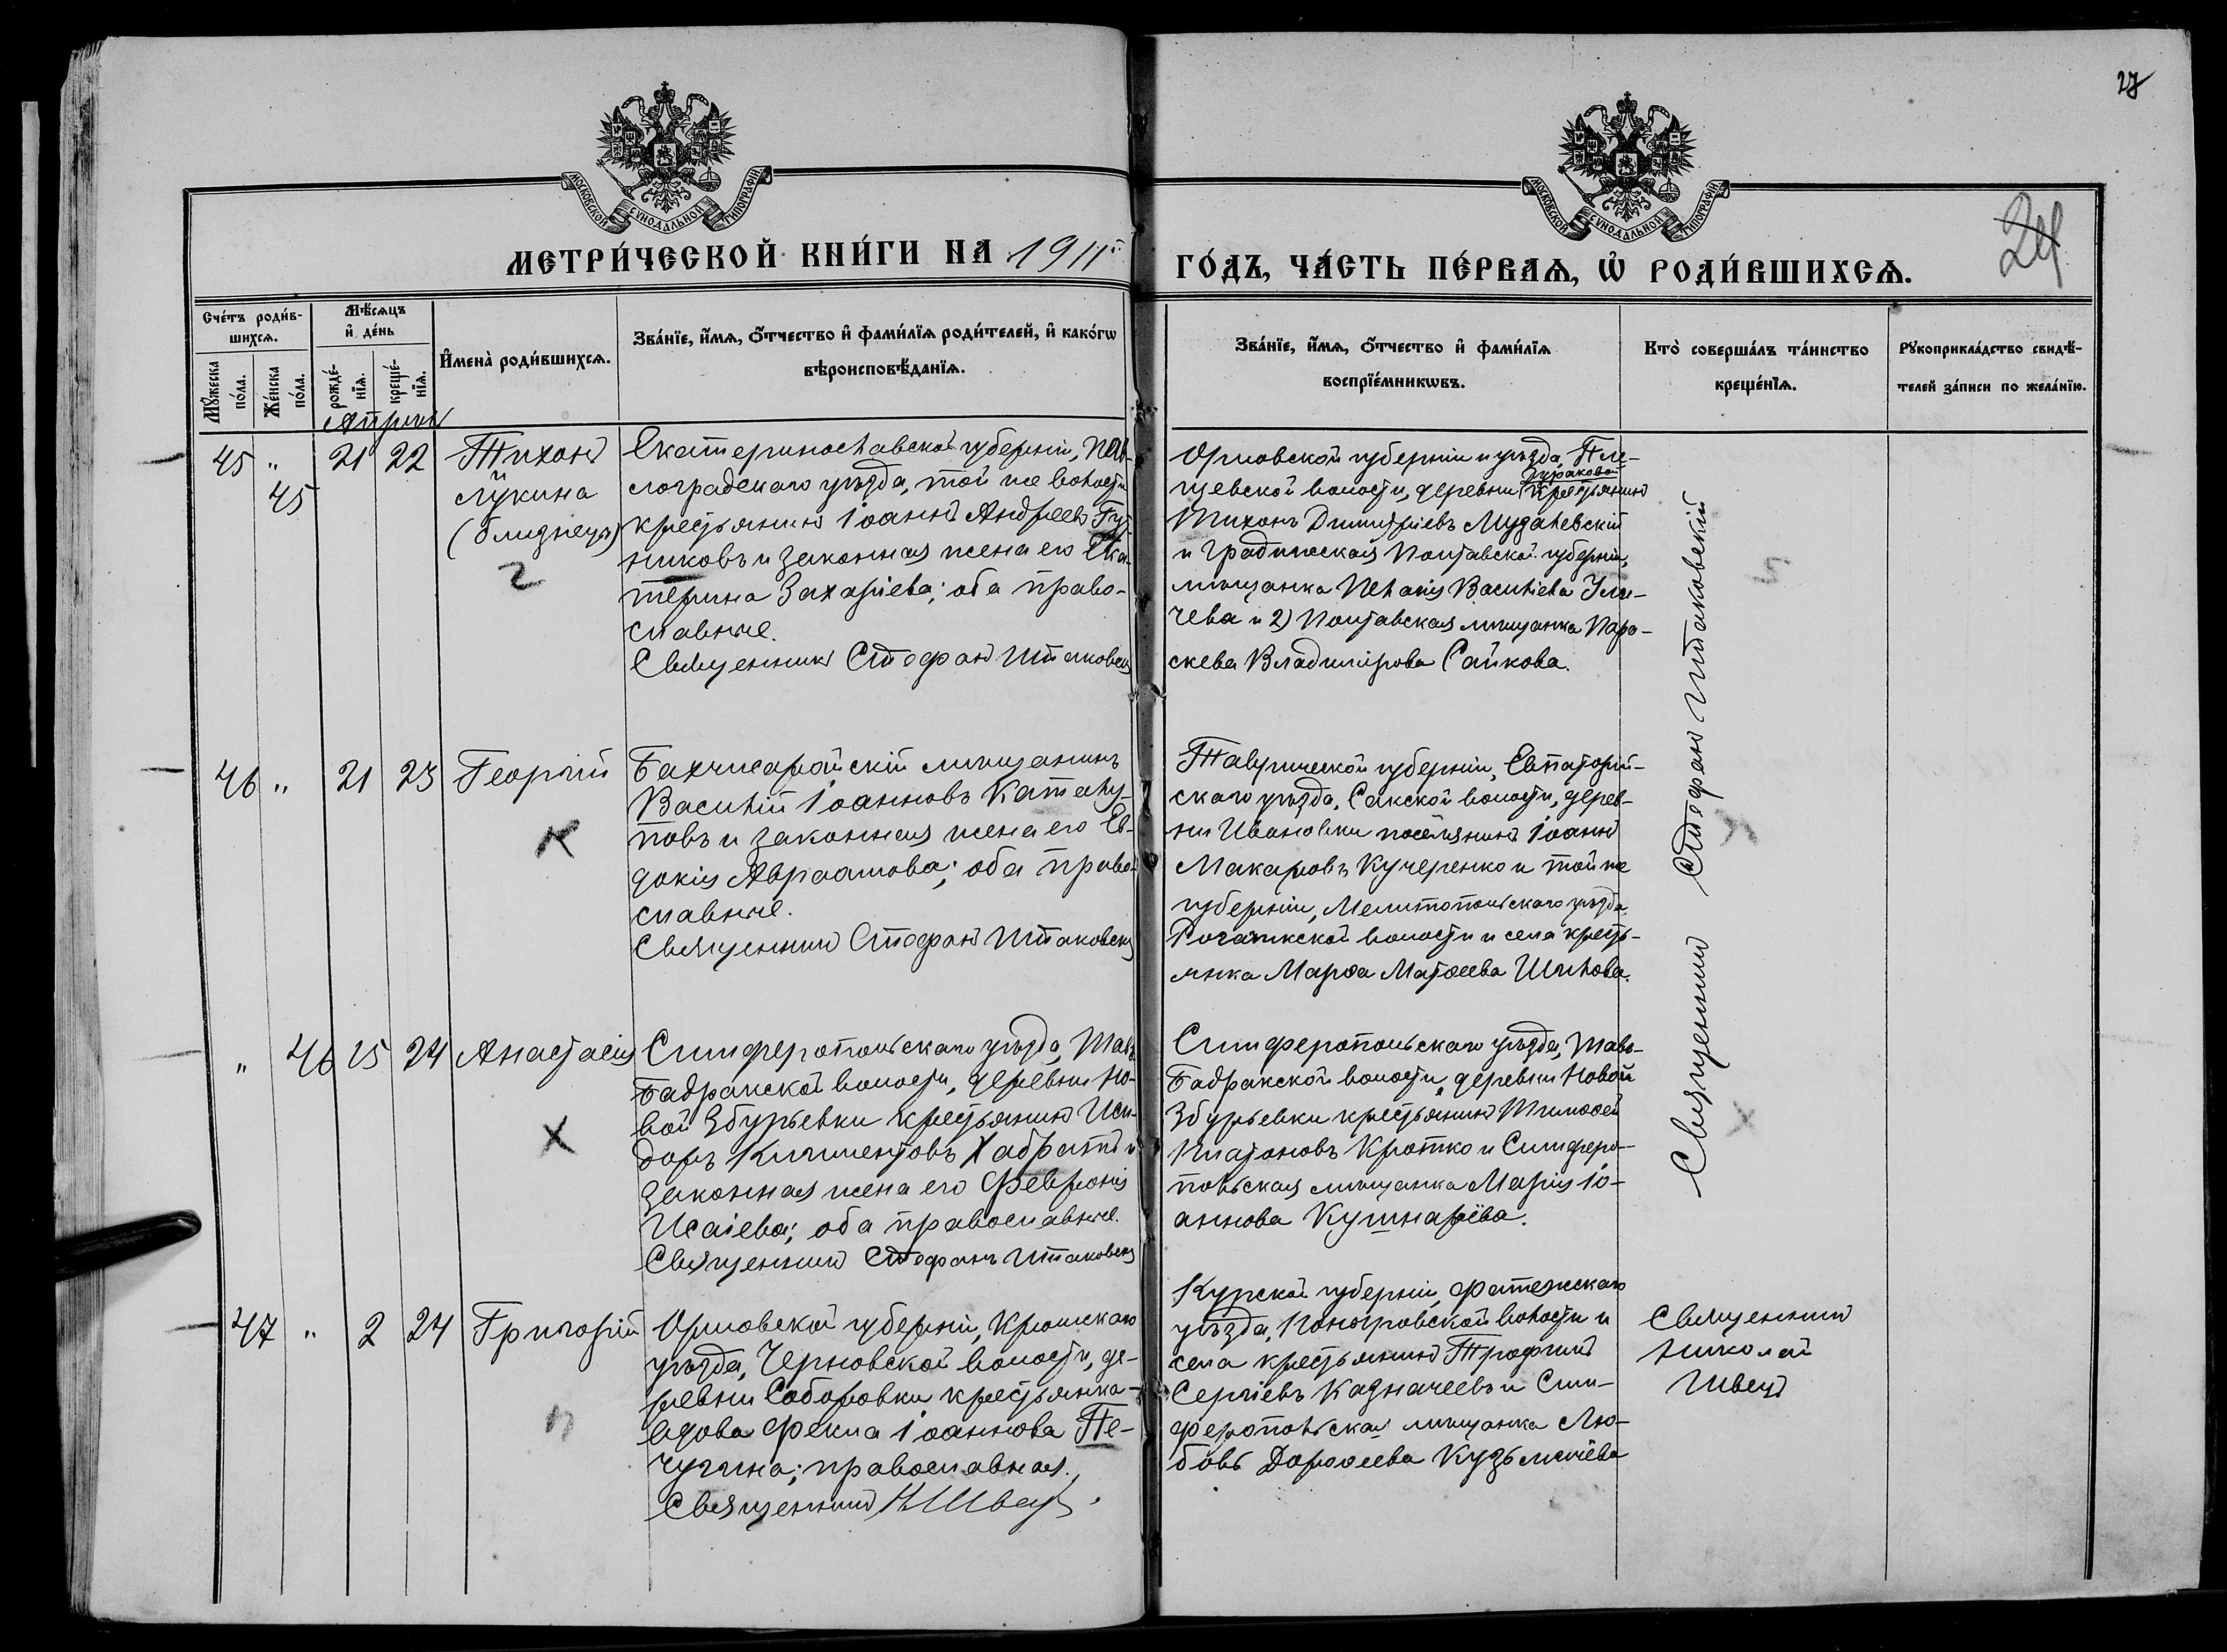 27
24
МОСКОВСКОЙ СѴНОДАЛЬНОЙ ТИПОГРАФІИ
МОСКОВСКОЙ СѴНОДАЛЬНОЙ ТИПОГРАФІИ
МЕТРИ́ЧЕСКОЙ КНИ́ГИ НА 1911й
ГО́ДЪ, ЧА́СТЬ ПЕ́РВАѦ, Ѡ҆ РОДИ́ВШИХСѦ.
Сче́тъ роди́в-
шихсѧ.
Мꙋ́жеска по́ла.
Же́нска по́ла.
Мѣ́сѧцъ
и҆ де́нь
рожде́-
нїѧ.
креще́-
нїѧ.
И҆мена̀ роди́вшихсѧ.
Зва́нїе, и҆́мѧ, ѻ҆́тчество и҆ фами́лїѧ роди́телей, и҆ како́гѡ
вѣроисповѣ́данїѧ.
Зва́нїе, и҆́мѧ, ѻ҆́тчество и҆ фами́лїѧ
воспрїе́мникѡвъ.
Кто̀ соверша́лъ та́инство
креще́нїѧ.
Рꙋкоприкла́дство свидѣ́-
телей за́писи по жела́нїю.
Апрель
45 " 21 22
45
Тихонъ
Лукина
(близнецы)
2
Екатеринославской губерніи, Пав-
лоградскаго уѣзда, той же волости
крестьянинъ Іоаннъ Андреевъ
никовъ и законная жена его Ека-
терина Захаріева; оба право-
славные.
Священникъ Стефанъ Штаковскій
Орловской губерніи и уѣзда, Пле-
щевской волости, деревни крестьянинъ
Тихонъ Димитріевъ
и Градижская Полтавской губерніи,
мѣщанка Пелагія Васильева
чева и 2) Полтавская мѣщанка Пара-
скева Владимірова Сайкова.
Священникъ Стефанъ Штаковскій
46 " 21 23 Георгій
Бахчисарайскій мѣщанинъ
Василій Іоанновъ Каталу-
повъ и законная жена его Ев-
докія Авраамова; оба право-
славные.
Священникъ Стефанъ Штаковскій
Таврической губерніи, Евпаторій-
скаго уѣзда, Сакской волости, дерев-
ни Ивановки поселянинъ Іоаннъ
Макаровъ Кучеренко и той же
губерніи, Мелитопольскаго уѣзда
Рогачикской волости и села кресть-
янка Марѳа Матѳеева Шилова.
" 46 15 24 Анастасія
Симферопольскаго уѣзда, Тавъ-
Бадракской волости, деревни Но-
вой Збурьевки крестьянинъ Иси-
доръ Климентовъ Хабратъ и
законная жена его Февронія
Исаіева; оба православные.
Священникъ Стефанъ Штаковскій
Симферопольскаго уѣзда, Тавъ-
Бадракской волости, деревни Новой
Збурьевки крестьянинъ Тимоѳей
Платоновъ Кротко и Симферо-
польская мѣщанка Марія Іо-
аннова Кушнарёва.
47 " 2 24 Григорій
Орловской губерніи, Кромскаго
уѣзда, Черновской волости, де-
ревни Соборовки крестьянка-
вдова Фекла Іоаннова Пе-
чугина; православная.
Священникъ Н Швецъ.
Курской губерніи, Фатежскаго
уѣзда, Поныровской волости и
села крестьянинъ Трофимъ
Сергіевъ Казначеевъ и Сим-
феропольская мѣщанка Лю-
бовь Дороѳеева Кузьмичёва
Священникъ
Николай
Швецъ